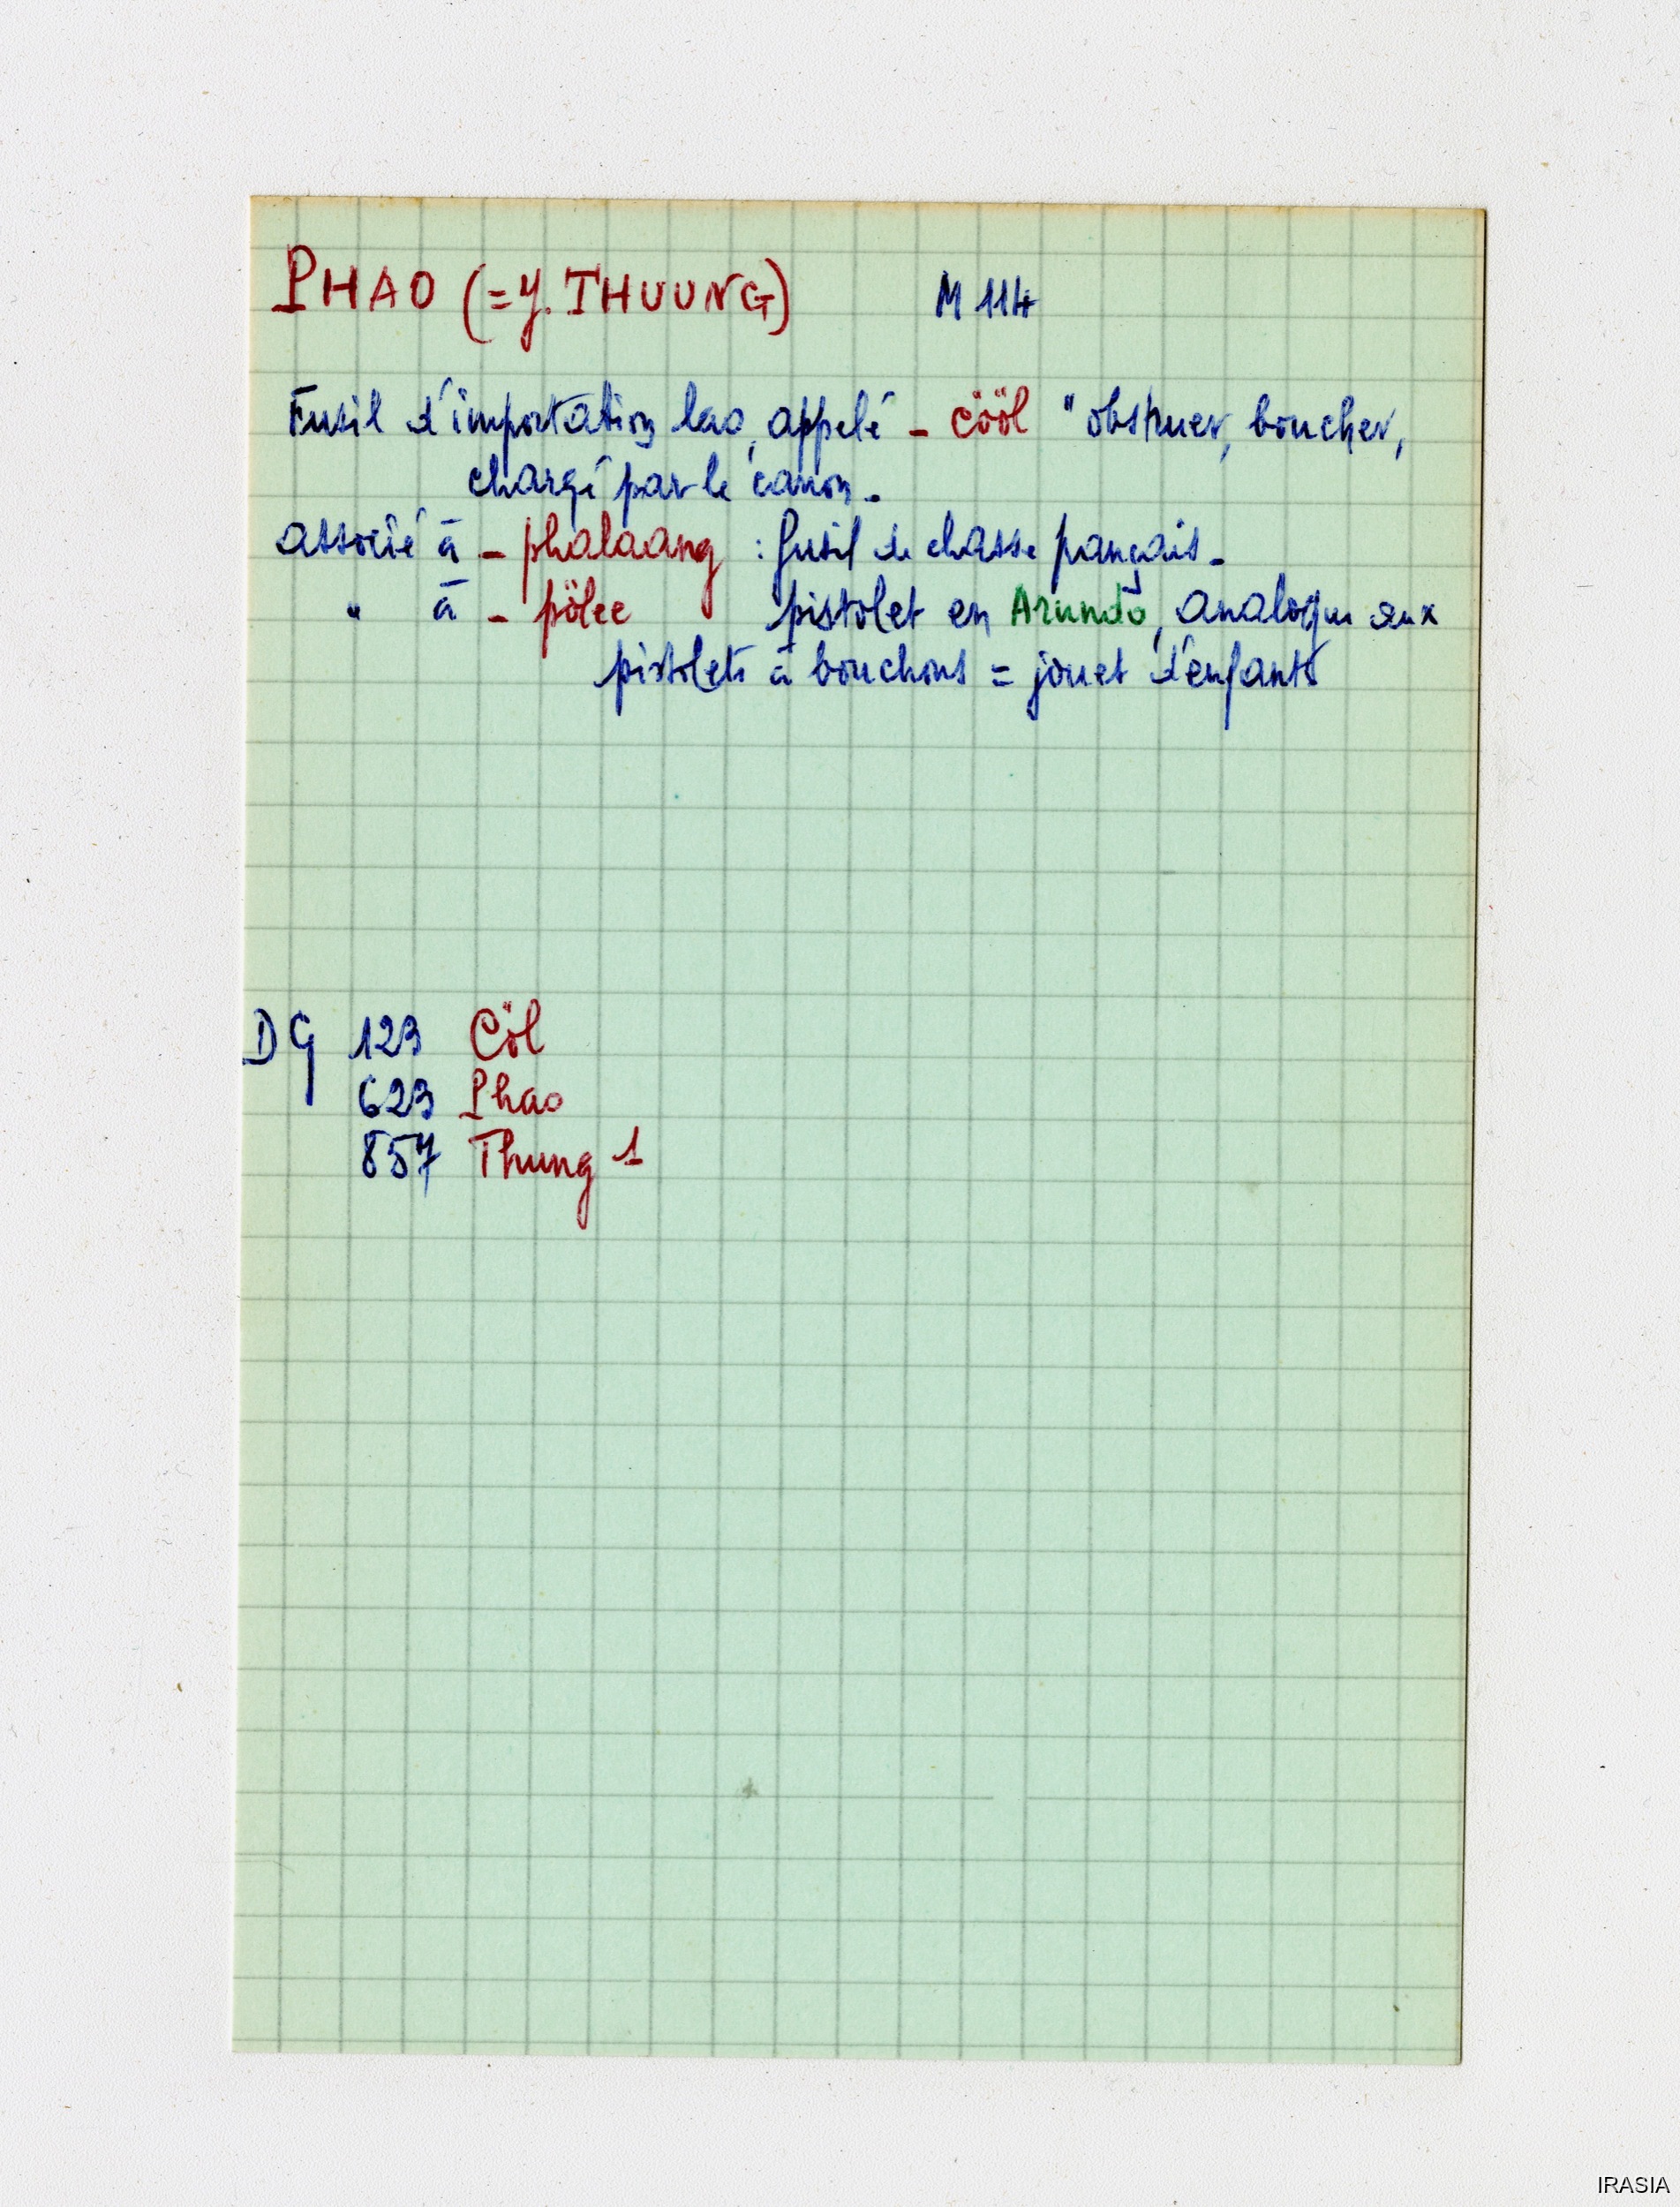 PHAO (= Y. THUUNG) M 114
Fusil d'importation lao, appelé - cööl "obstruer, boucher,
chargé par le canon -
associé à - phalaang : fusil de chasse français -
" à - pölee pistolet en Arundo, analogue aux
pistolets à bouchons = jouet d'enfants
DG 123 Cöl
623 Phao
857 Thung 1
IRASIA